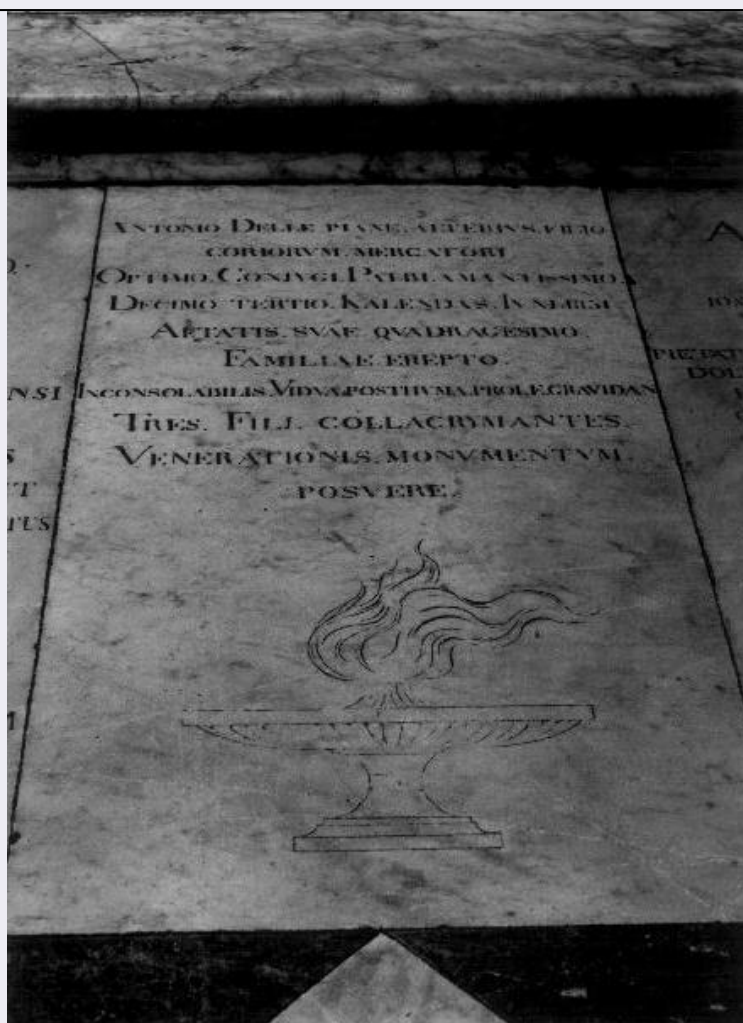 ANTONIO DELLE PIANE. ALTERIVS. FILIO
CORIORVM. MERCATORI
OPTIMO. CONJVGI. PATRI. AMANTISSIMO.
DECIMO TERTIO. KALENDAS.
AETATIS. SVAE QVADRAGESIMO.
FAMILIAE EREPTO.
INCONSOLABILIS. VIDVA. POSTHVMA. PROLE. GRAVIDAN
TRES. FILI. COLLACRYMANTES.
VENERATIONIS. MONVMENTVM.
POSVERE.
NSI
TUS
PIETAT
DOL